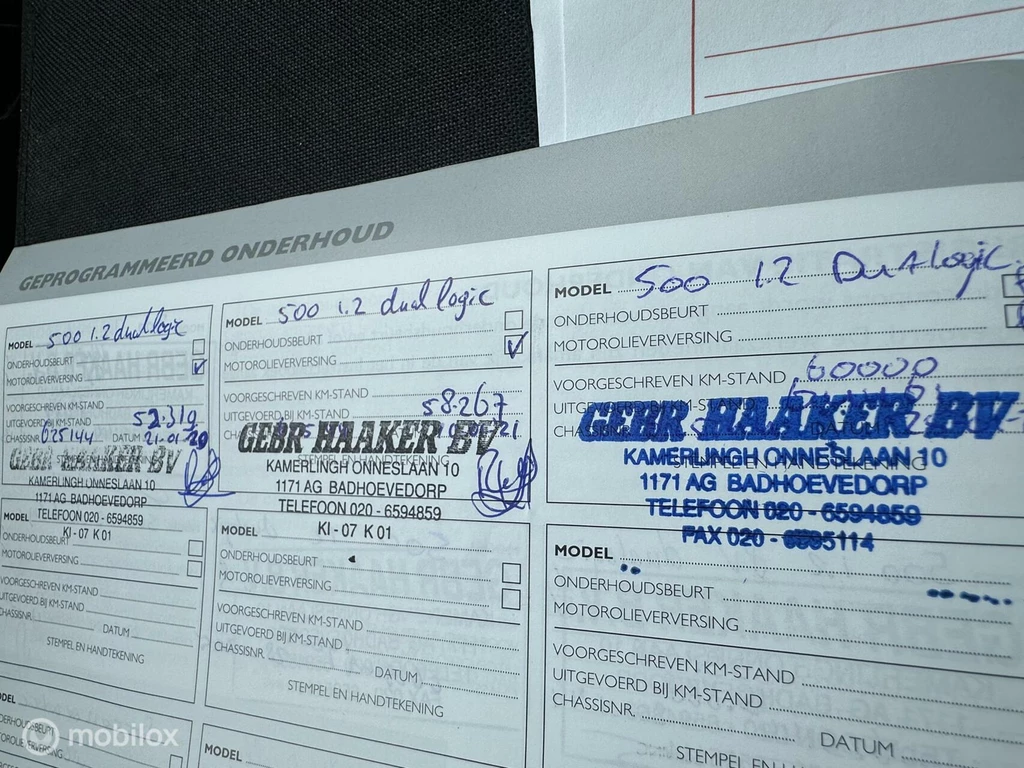 GEPROGRAMMEERD ONDERHOUD
MODEL 500 1.2 dual logic
ONDERHOUDSBEURT
MOTOROLIEVERVERSING
VOORGESCHREVEN KM-STAND
UITGEVOERD BIJ KM-STAND 52.319
CHASSISNR. 025144 DATUM 21-01-20
GEBR HAAKER BV
STEMPEL EN HANDTEKENING
KAMERLINGH ONNESLAAN 10
1171 AG BADHOEVEDORP
TELEFOON 020 - 6594859
KI - 07 K 01
MODEL 500 1.2 dual logic
ONDERHOUDSBEURT
MOTOROLIEVERVERSING
VOORGESCHREVEN KM-STAND
UITGEVOERD BIJ KM-STAND 58.267
GEBR HAAKER BV
STEMPEL EN HANDTEKENING
KAMERLINGH ONNESLAAN 10
1171 AG BADHOEVEDORP
TELEFOON 020 - 6594859
KI - 07 K 01
MODEL 500 1.2 Dualogic
ONDERHOUDSBEURT
MOTOROLIEVERVERSING
VOORGESCHREVEN KM-STAND 60000
GEBR HAAKER BV
DATUM
STEMPEL EN HANDTEKENING
KAMERLINGH ONNESLAAN 10
1171 AG BADHOEVEDORP
TELEFOON 020 - 6594859
FAX 020 - 6595114
MODEL
ONDERHOUDSBEURT
MOTOROLIEVERVERSING
VOORGESCHREVEN KM-STAND
UITGEVOERD BIJ KM-STAND
CHASSISNR.
DATUM
STEMPEL EN HANDTEKENING
MODEL
ONDERHOUDSBEURT
MOTOROLIEVERVERSING
VOORGESCHREVEN KM-STAND
UITGEVOERD BIJ KM-STAND
CHASSISNR. DATUM
STEMPEL EN HANDTEKENING
MODEL
ONDERHOUDSBEURT
MOTOROLIEVERVERSING
VOORGESCHREVEN KM-STAND
UITGEVOERD BIJ KM-STAND
CHASSISNR. DATUM
STEMPEL EN
MODEL
mobilox